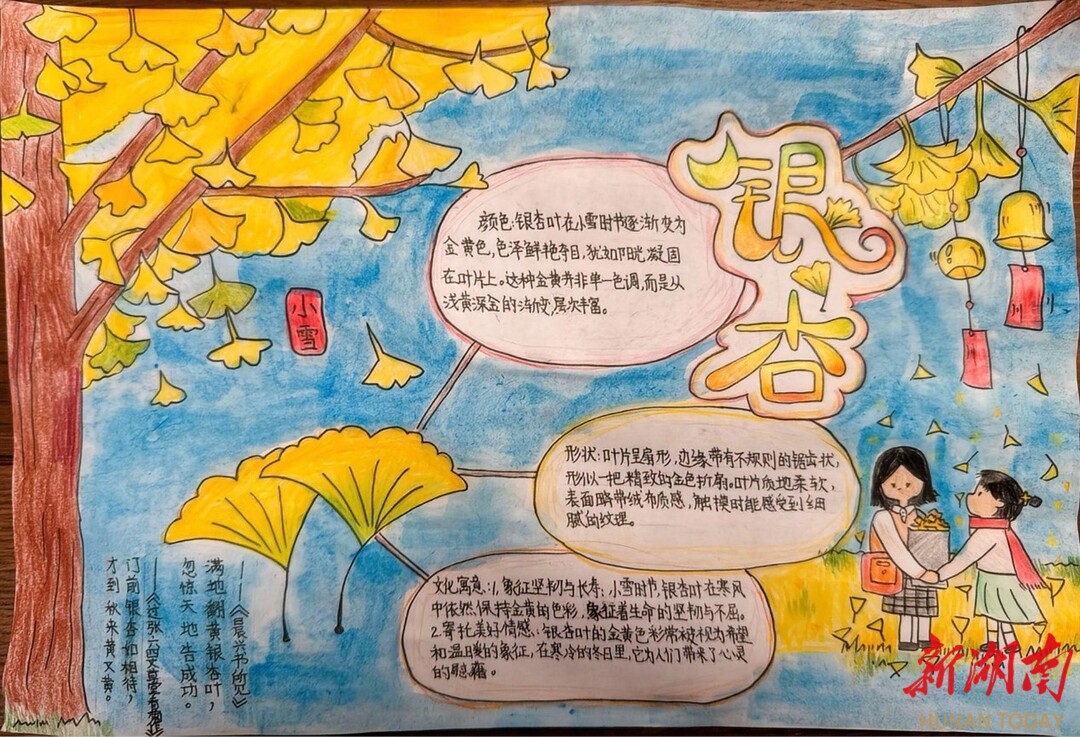 银杏
小雪
颜色:银杏叶在小雪时节逐渐变为
金黄色,色泽鲜艳夺目,犹如阳光凝固
在叶片上。这种金黄并非单一色调,而是从
浅黄深金的渐变,层次丰富。
形状:叶片呈扇形,边缘带有不规则的锯齿状,
形似一把精致的金色折扇。叶片质地柔软,
表面略带绒布质感,触摸时能感受到细
腻的纹理。
文化寓意:1、象征坚韧与长寿:小雪时节,银杏叶在寒风
中依然保持金黄的色彩,象征着生命的坚韧与不屈。
2.寄托美好情感:银杏叶的金黄色彩常被视为希望
和温暖的象征,在寒冷的冬日里,它为人们带来了心灵
的慰藉。
——《晨兴书所见》
满地翻黄银杏叶,
忽惊天地告成功。
——《过张
门前银杏如相待,
才到秋来黄又黄。
新湖南
HUNAN TODAY